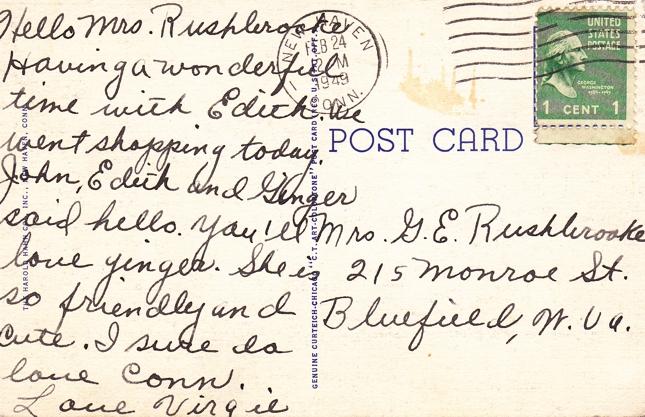 Hello Mrs. Rushbrooke
Having a wonderful
time with Edith. We
went shopping today.
John, Edith and Ginger
said hello. You'll
love ginger. She is
so friendly and
cute. I sure do
love Conn.
Love Virgie
NEW HAVEN
FEB 24
PM
1949
CONN.
UNITED
STATES
POSTAGE
GEORGE
WASHINGTON
1 CENT 1
POST CARD
Mrs. G. E. Rushbrooke
215 Monroe St.
Bluefield, W. Va.
GENUINE CURTEICH-CHICAGO "C.T. ART-COLORTONE" POST CARD (REG. U.S. PAT. OFF.)